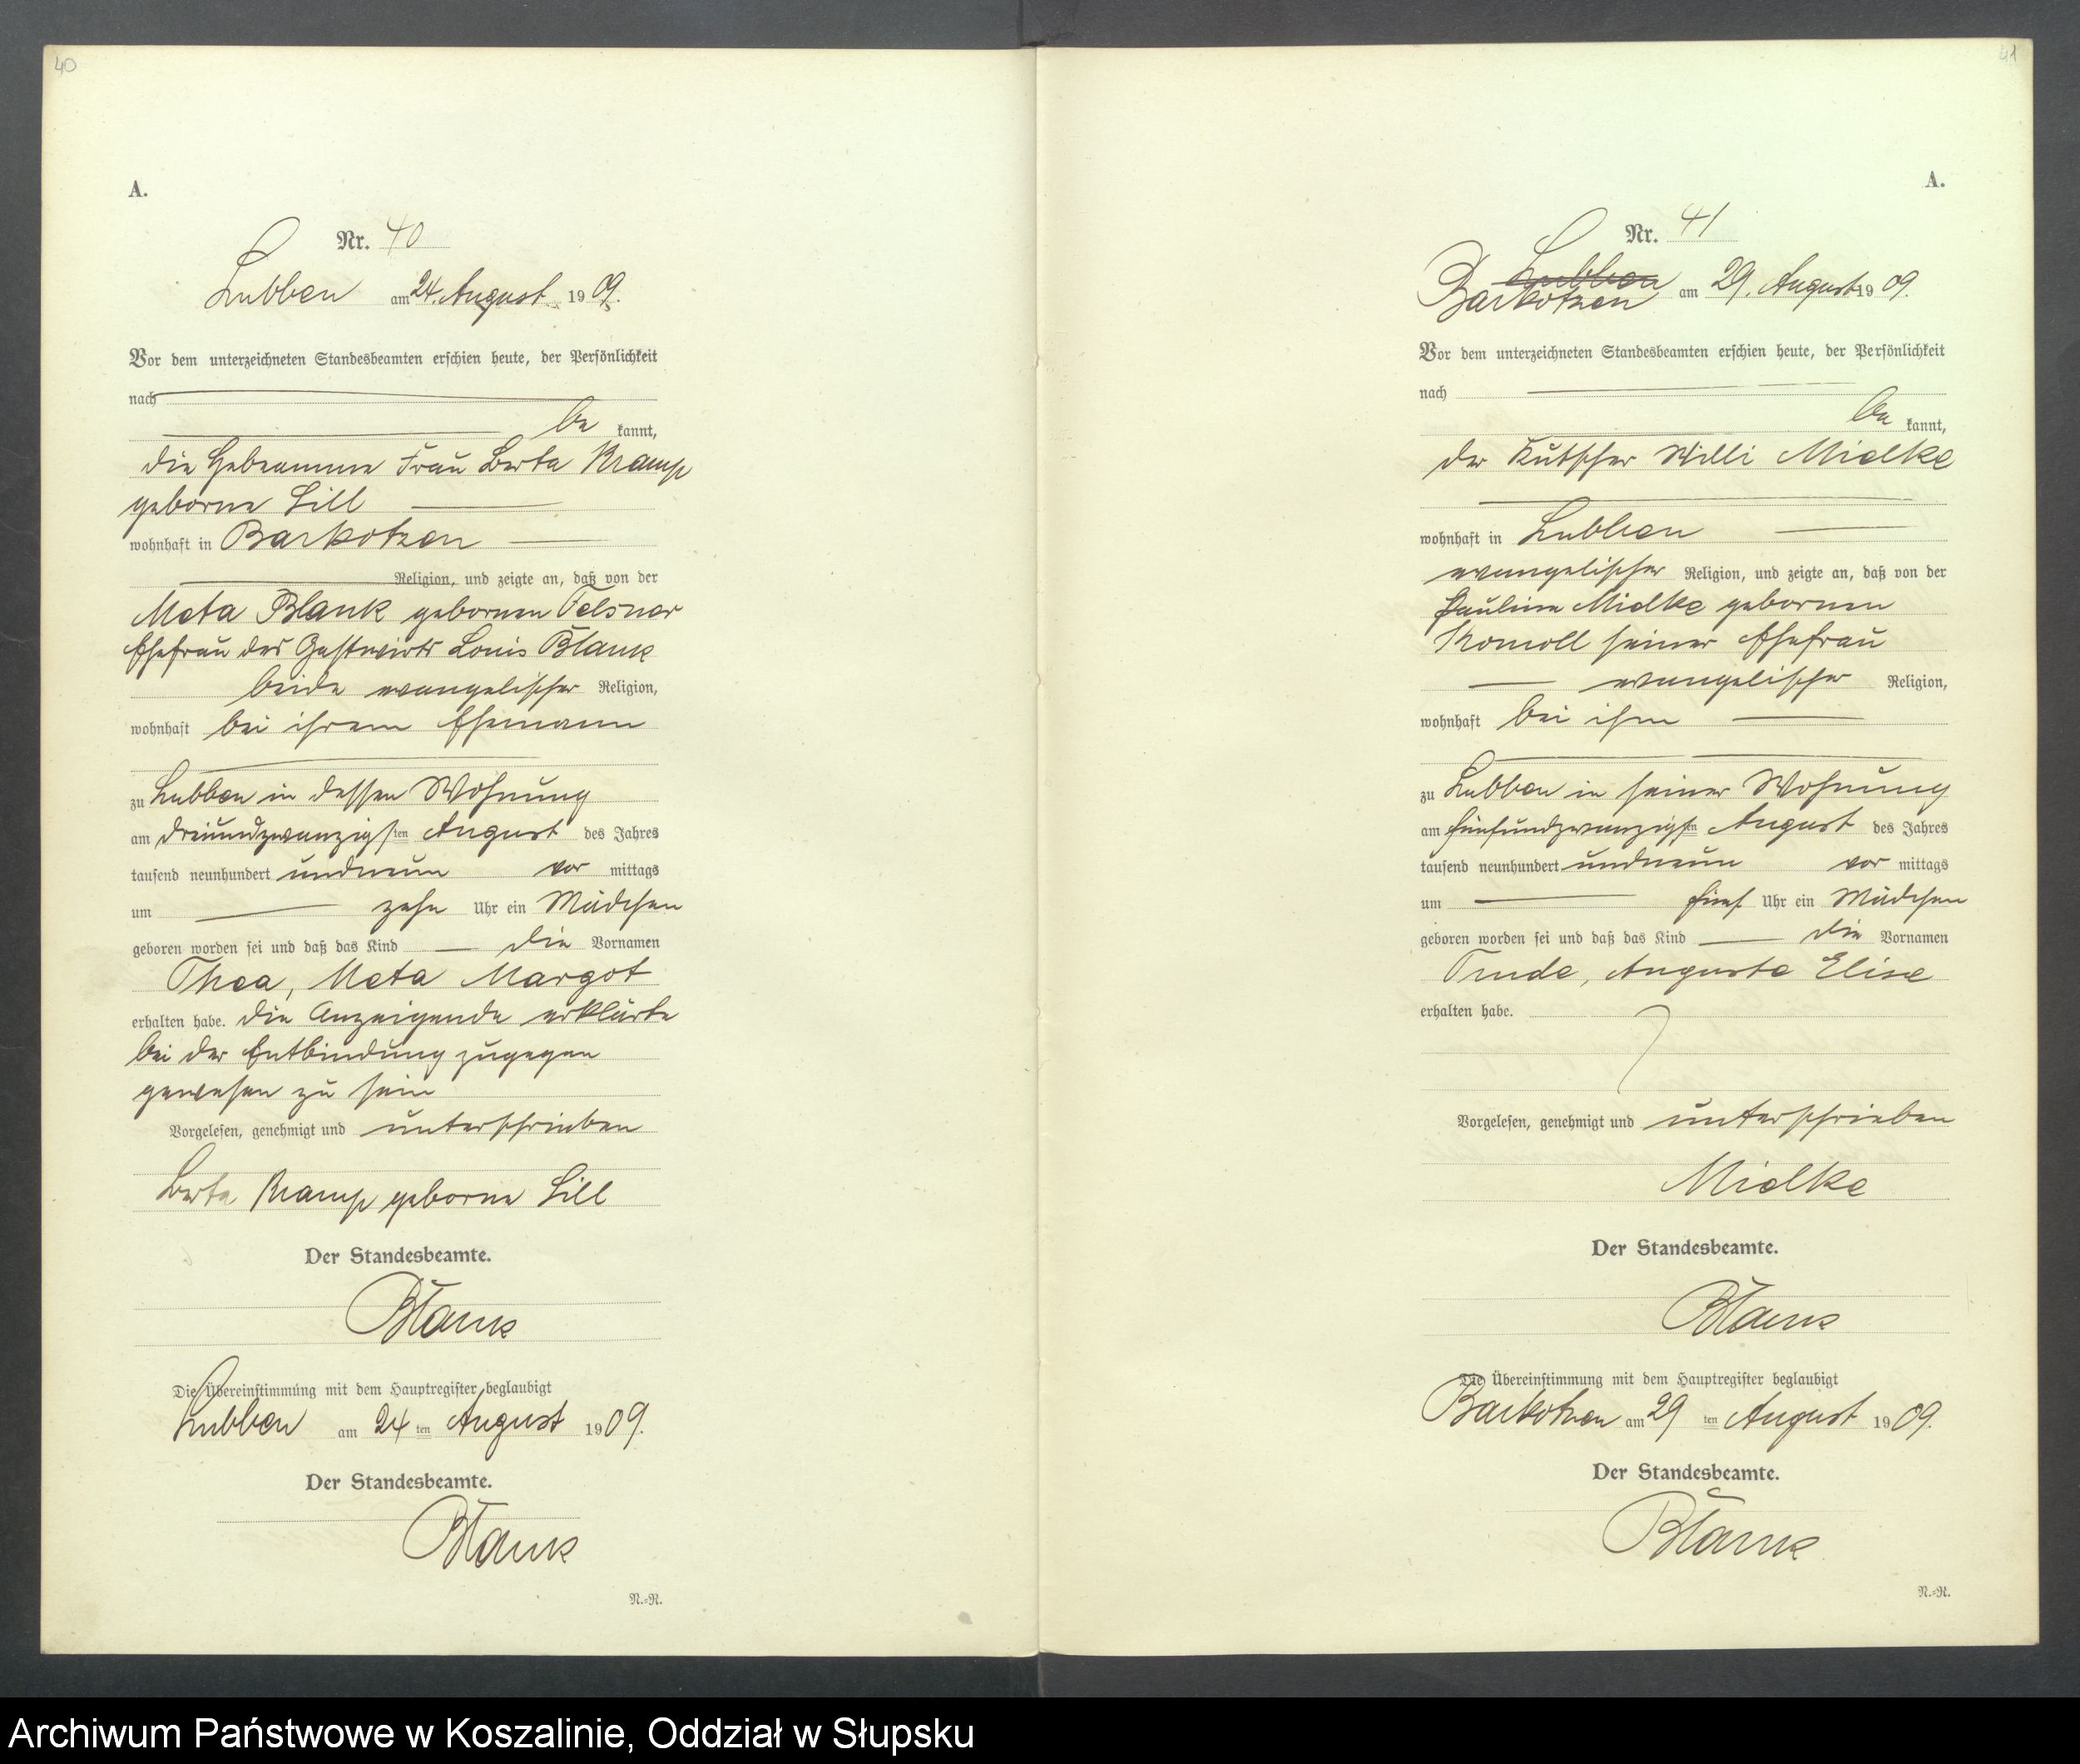 40
A.
Nr. 40
Lubben am 24. August 1909.
Vor dem unterzeichneten Standesbeamten erschien heute, der Persönlichkeit
nach
be kannt,
die Hebeamme Frau Berta Kramp
geborne Lill
wohnhaft in Barkotzen
Religion, und zeigte an, daß von der
Meta Blank gebornen Telsner
Ehefrau des Gastwirts Louis Blank
beide evangelischer Religion,
wohnhaft bei ihrem Ehemann
zu Lubben in dessen Wohnung
am dreiundzwanzigsten August des Jahres
tausend neunhundert undneun vor mittags
um zehn Uhr ein Mädchen
geboren worden sei und daß das Kind die Vornamen
Thea, Meta Margot
erhalten habe. die Anzeigende erklärte
bei der Entbindung zugegen
gewesen zu sein
Vorgelesen, genehmigt und unterschrieben
Berta Kramp geborne Lill
Der Standesbeamte.
Blank
Die Übereinstimmung mit dem Hauptregister beglaubigt
Lubben am 24 ten August 1909.
Der Standesbeamte.
Blank
N.-R.
41
A.
Nr. 41
Lubben
Barkotzen am 29. August 1909.
Vor dem unterzeichneten Standesbeamten erschien heute, der Persönlichkeit
nach
be kannt,
der Kutscher Willi Mielke
wohnhaft in Lubben
evangelischer Religion, und zeigte an, daß von der
Pauline Mielke gebornen
Komoll seiner Ehefrau
evangelischer Religion,
wohnhaft bei ihm
zu Lubben in seiner Wohnung
am fünfundzwanzigsten August des Jahres
tausend neunhundert undneun vor mittags
um fünf Uhr ein Mädchen
geboren worden sei und daß das Kind die Vornamen
Trude, Auguste Elise
erhalten habe.
Vorgelesen, genehmigt und unterschrieben
Mielke
Der Standesbeamte.
Blank
Die Übereinstimmung mit dem Hauptregister beglaubigt
Barkotzen am 29 ten August 1909.
Der Standesbeamte.
Blank
N.-R.
Archiwum Państwowe w Koszalinie, Oddział w Słupsku